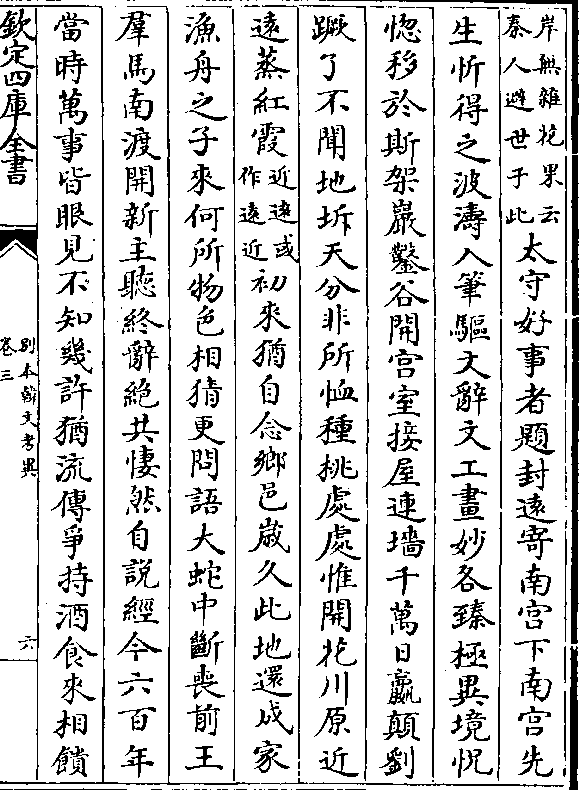 岸無雜花果云
秦人避世于此
太守好事者題封遠寄南宫下南宫先
生忻得之波濤入筆驅文辭文工畫妙各臻極異境恍
惚移於斯架巖鑿谷開宫室接屋連墻千萬日嬴顛劉
蹶了不聞地坼天分非所恤種桃處處惟開花川原近
遠蒸紅霞
近遠或
作遠近
初來猶自念鄉邑嵗久此地還成家
漁舟之子來何所物色相猜更問語大蛇中斷喪前王
羣馬南渡開新主聽終辭絶共悽然自說經今六百年
當時萬事皆眼見不知幾許猶流傳爭持酒食來相饋
欽定四庫全書
别本韓文考異
卷三
六